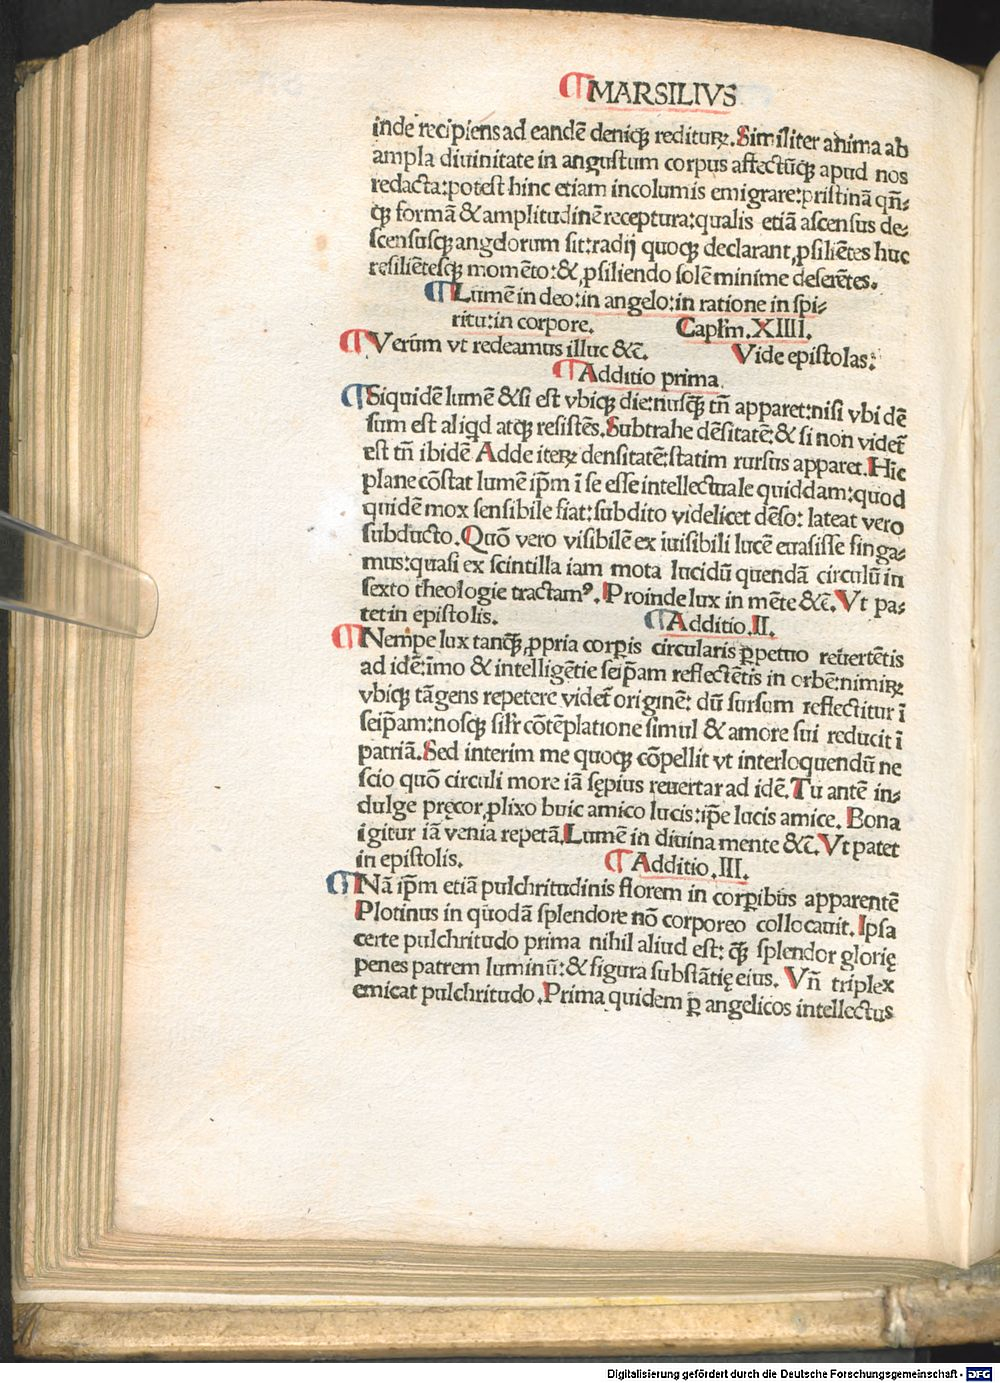 ¶MARSILIVS
inde recipiens ad eandē deniqꝫ rediturꝝ. Similiter anima ab
ampla diuinitate in angustum corpus affectūqꝫ apud nos
redacta: potest hinc etiam incolumis emigrare: pristinā qn̄-
qꝫ formā & amplitudinē receptura: qualis etiā ascensus de-
scensusqꝫ angelorum sit: radij quoqꝫ declarant, ꝓsiliētes huc
resiliētesqꝫ momēto: &, ꝓsiliendo solē minime deserētes.
¶Lumē in deo: in angelo: in ratione in spi-
ritu: in corpore. Caplm̄. XIIII.
¶Verūm vt redeamus illuc &c̄. Vide epistolas:
¶Additio prima.
¶Siquidē lumē & si est vbiqꝫ die: nusqꝫ tn̄ apparet: nisi vbi dē
sum est aliqd atqꝫ resistēs. Subtrahe dēsitatē: & si non videt̄
est tn̄ ibidē Adde iterꝝ densitatē: statim rursus apparet. Hic
plane cōstat lumē ip̄m ī se esse intellectuale quiddam: quod
quidē mox sensibile fiat: subdito videlicet dēso: lateat vero
subducto. Quō vero visibilē ex iuisibili lucē euasisse finga-
mus: quasi ex scintilla iam mota lucidū quendā circulū in
sexto theologie tractamꝰ. Proinde lux in mēte &c̄. Vt pa-
tet in epistolis. ¶Additio. II.
¶Nempe lux tanqꝫ, ꝓpria corꝑis circularis ꝑpetuo reuertētis
ad idē: īmo & intelligētie seip̄am reflectētis in orbē: nimirꝝ
vbiqꝫ tāgens repetere videt̄ originē: dū sursum reflectitur ī
seip̄am: nosqꝫ sil̄r cōtēplatione simul & amore sui reducit ī
patriā. Sed interim me quoqꝫ cōpellit vt interloquendū ne
scio quō circuli more iā sępius reuertar ad idē. Tu antē in-
dulge pręcor, ꝓlixo huic amico lucis: ip̄e lucis amice. Bona
igitur iā venia repetā. Lumē in diuina mente &c̄. Vt patet
in epistolis. ¶Additio. III.
¶Nā ip̄m etiā pulchritudinis florem in corꝑibus apparentē
Plotinus in quodā splendore nō corporeo collocauit. Ipsa
certe pulchritudo prima nihil aliud est: qꝫ splendor glorię
penes patrem luminū: & figura substātię eius. Vn̄ triplex
emicat pulchritudo. Prima quidem ꝑ angelicos intellectus
Digitalisierung gefördert durch die Deutsche Forschungsgemeinschaft - DFG